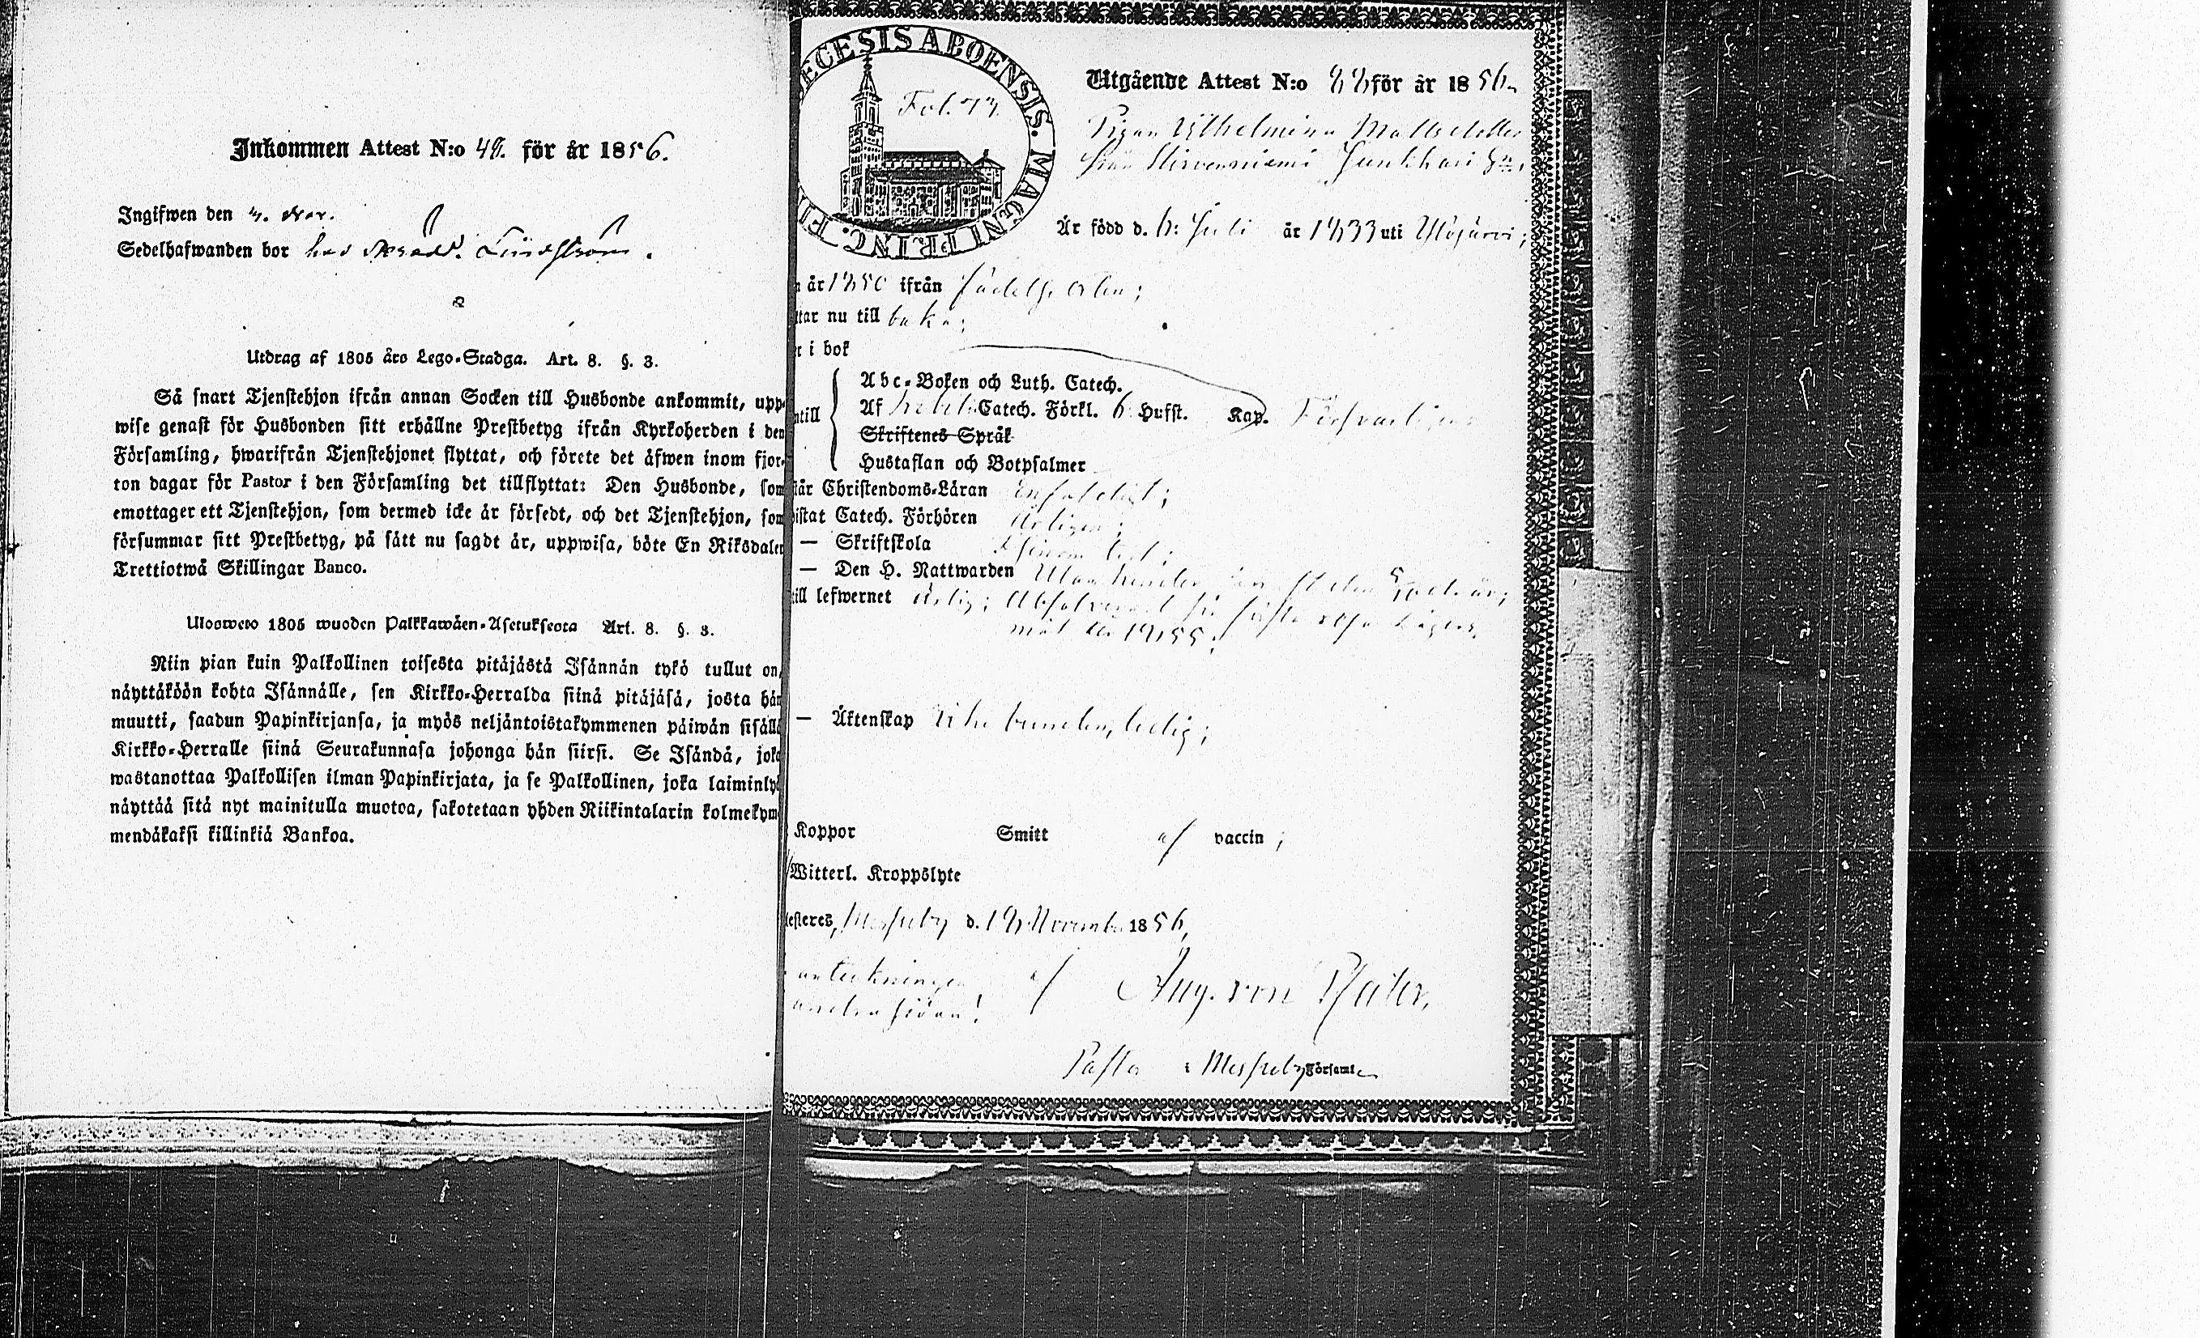 Inkommen Attest N:o 49. för år 1856.
Ingifwen den
Sedelhafwanden bor hos Lindström.
Utdrag af 1805 års Lego-Stadga. Art. 8. §. 3.
Så snart Tjenstehjon ifrån annan Socken till Husbonde ankommit, upp-
wise genast för Husbonden sitt erhållne Prestbetyg ifrån Kyrkoherden i den
Församling, hwarifrån Tjenstehjonet flyttat, och förete det äfwen inom fjor-
ton dagar för Pastor i den Församling det tillflyttat: Den Husbonde, som
emottager ett Tjenstehjon, som dermed icke är försedt, och det Tjenstehjon, som
försummar sitt Prestbetyg, på sätt nu sagdt är, uppwisa, böte En Riksdaler
Trettiotwå Skillingar Banco.
Ulosweto 1805 wuoden Palkkawäen-Asetuksesta Art. 8. §. 3.
Niin pian kuin Palkollinen toisesta pitäjästä Isännän tykö tullut on,
näyttäköön kohta Isännälle, sen Kirkko-Herralda siinä pitäjäsä, josta hän
muutti, saadun Papinkirjansa, ja myös neljäntoistakymmenen päiwän sisällä
Kirkko-Herralle siinä Seurakunnasa johonga hän siirsi. Se Isändä, joka
wastanottaa Palkollisen ilman Papinkirjata, ja se Palkollinen, joka laiminly
näyttää sitä nyt mainitulla muotoa, sakotetaan yhden Riikintalarin kolmekym-
mendäkaksi killinkiä Bankoa.
ECESIS ABOENSIS. MAGNI PRINC. FI
Fol. 73.
Utgående Attest N:o 88 för år 1856.
Pigan Wilhelmina Mattsdotter
från Hirvenniemi Junkkari
Är född d. 6: Juli år 1833 uti Ylöjärvi;
år 1850 ifrån födelse orten;
tar nu till baka;
r i bok
Abc-Boken och Luth. Catech.
ntill Af Catech. Förkl. 6 Hufst. Kap. Försvarligen
Skriftenes Språk
Hustaflan och Botpsalmer
tår Christendoms-Läran enfaldigt;
istat Catech. Förhören årligen;
— Skriftskola
— Den H. Nattwarden
till lefwernet ärlig;
mål år 1855.
— Äktenskap Obunden, ledig;
Koppor Smitt af vaccin;
Witterl. Kroppslyte
testeres, Messuby d. 18 November 1856,
anteckningen af Aug. von Pfaler,
andra sidan!
Pastor i Messuby Församl.